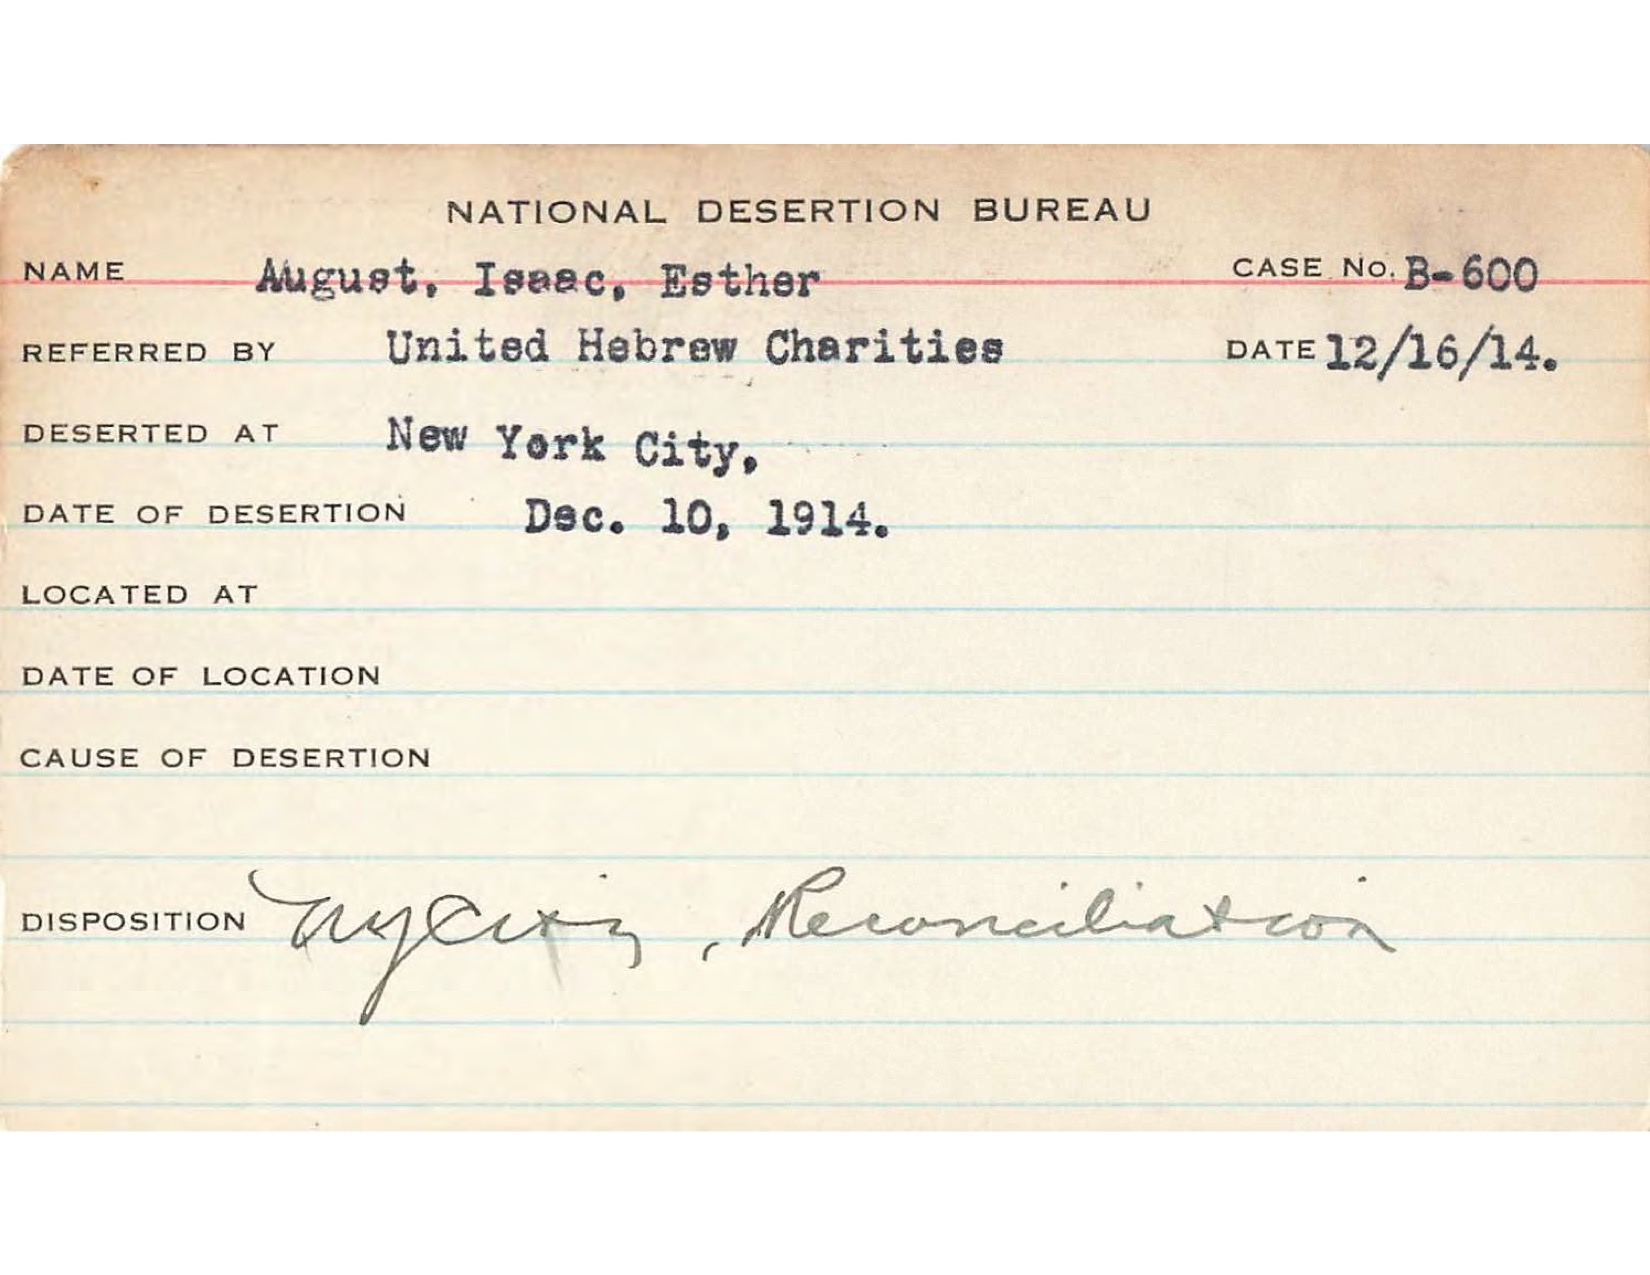 NATIONAL DESERTION BUREAU
NAME August, Isaac, Esther CASE No. B-600
REFERRED BY United Hebrew Charities DATE 12/16/14.
DESERTED AT New York City,
DATE OF DESERTION Dec. 10, 1914.
LOCATED AT
DATE OF LOCATION
CAUSE OF DESERTION
DISPOSITION NY City, Reconciliation